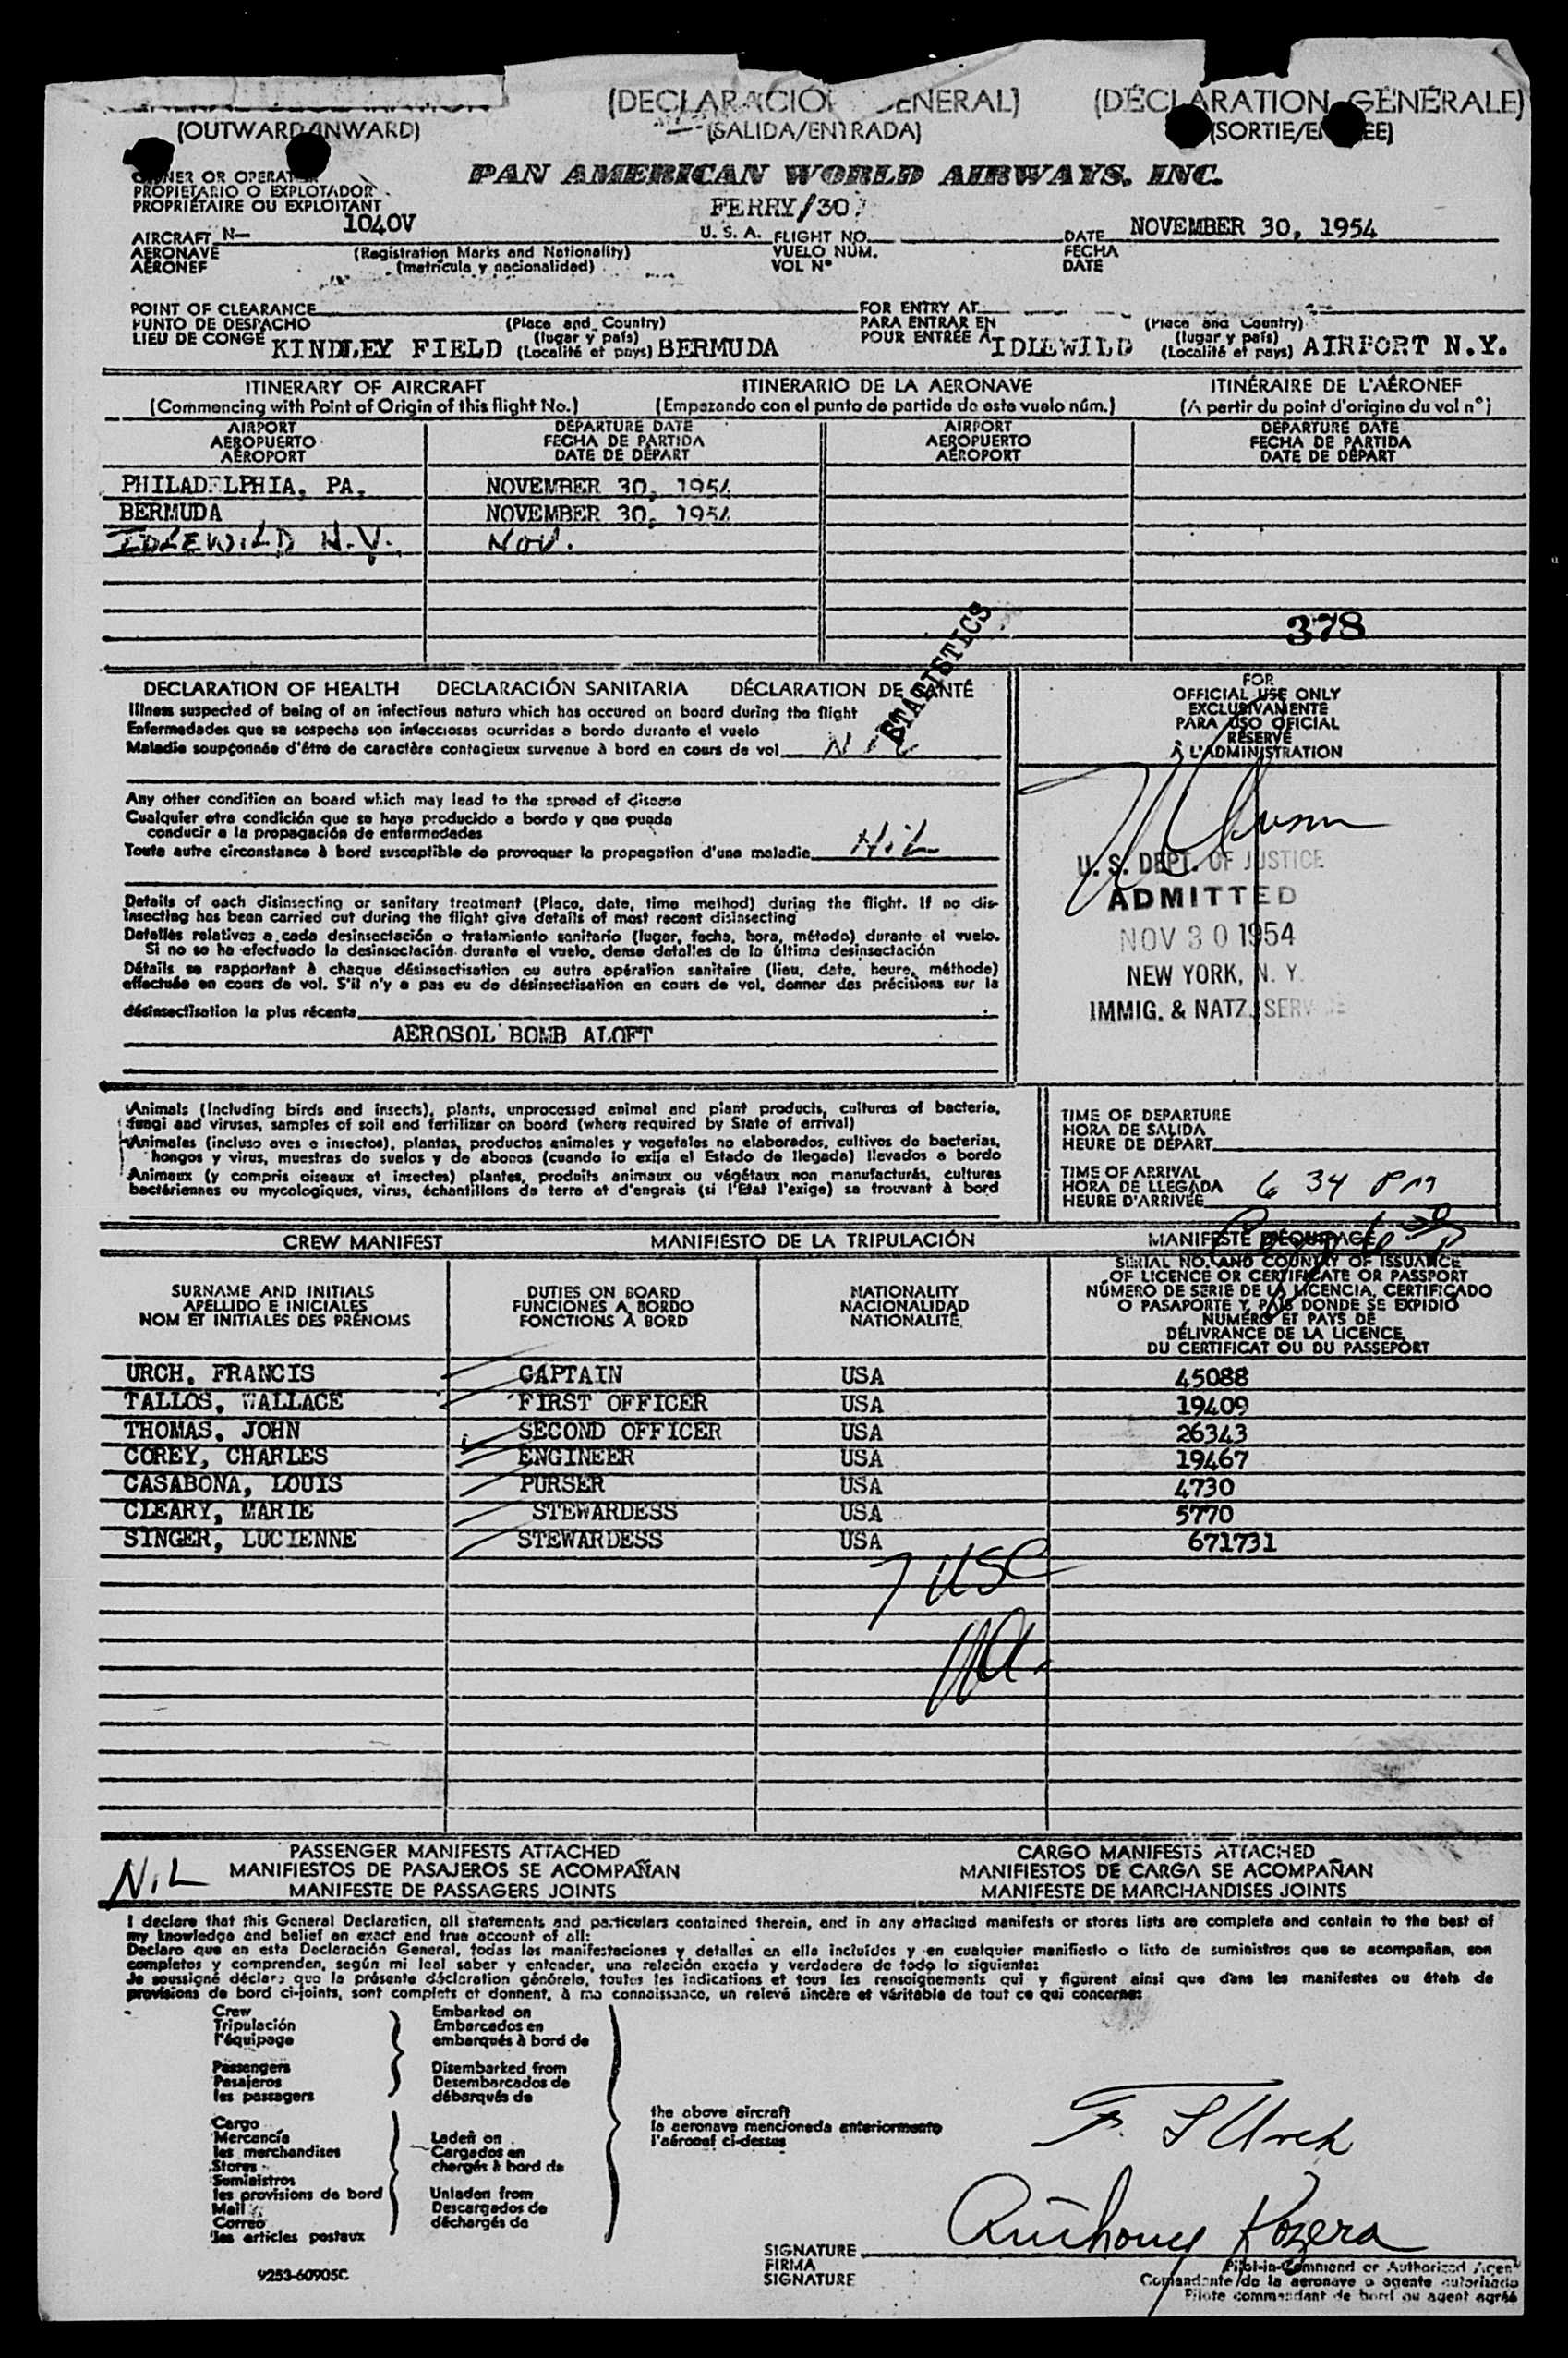 (DECLARACIÓN GENERAL) (DÉCLARATION GÉNÉRALE)
(OUTWARD/INWARD) (SALIDA/ENTRADA) (SORTIE/ENTRÉE)
OWNER OR OPERATOR
PROPIETARIO O EXPLOTADOR
PROPRIÉTAIRE OU EXPLOITANT
PAN AMERICAN WORLD AIRWAYS, INC.
FERRY/30
AIRCRAFT N- 1040V U. S. A. FLIGHT NO. DATE NOVEMBER 30, 1954
AERONAVE (Registration Marks and Nationality) VUELO NÚM. FECHA
AÉRONEF (matrícula y nacionalidad) VOL Nº DATE
POINT OF CLEARANCE FOR ENTRY AT
PUNTO DE DESPACHO (Place and Country) PARA ENTRAR EN (Place and Country)
LIEU DE CONGÉ KINDLEY FIELD (lugar y país) (Localité et pays) BERMUDA POUR ENTRÉE À IDLEWILD (lugar y país) (Localité et pays) AIRPORT N.Y.
ITINERARY OF AIRCRAFT ITINERARIO DE LA AERONAVE ITINÉRAIRE DE L'AÉRONEF
(Commencing with Point of Origin of this flight No.) (Empezando con el punto de partida de este vuelo núm.) (A partir du point d'origine du vol nº)
AIRPORT DEPARTURE DATE AIRPORT DEPARTURE DATE
AEROPUERTO FECHA DE PARTIDA AEROPUERTO FECHA DE PARTIDA
AÉROPORT DATE DE DÉPART AÉROPORT DATE DE DÉPART
PHILADELPHIA, PA. NOVEMBER 30, 1954
BERMUDA NOVEMBER 30, 1954
IDLEWILD N.Y. NOV.
378
STATISTICS
DECLARATION OF HEALTH DECLARACIÓN SANITARIA DÉCLARATION DE SANTÉ
Illness suspected of being of an infectious nature which has occured on board during the flight
Enfermedades que se sospecha son infecciosas ocurridas a bordo durante el vuelo
Maladie soupçonnée d'être de caractère contagieux survenue à bord en cours de vol NIL
Any other condition on board which may lead to the spread of disease
Cualquier otra condición que se haya producido a bordo y que pueda
conducir a la propagación de enfermedades
Toute autre circonstance à bord susceptible de provoquer la propagation d'une maladie NIL
Details of each disinsecting or sanitary treatment (Place, date, time method) during the flight. If no dis-
insecting has been carried out during the flight give details of most recent disinsecting
Detalles relativos a cada desinsectación o tratamiento sanitario (lugar, fecha, hora, método) durante el vuelo.
Si no se ha efectuado la desinsectación durante el vuelo, dense detalles de la última desinsectación
Détails se rapportant à chaque désinsectisation ou autre opération sanitaire (lieu, date, heure, méthode)
effectuée en cours de vol. S'il n'y a pas eu de désinsectisation en cours de vol, donner des précisions sur la
désinsectisation la plus récente
AEROSOL BOMB ALOFT
FOR
OFFICIAL USE ONLY
EXCLUSIVAMENTE
PARA USO OFICIAL
RÉSERVÉ
À L'ADMINISTRATION
U. S. DEPT. OF JUSTICE
ADMITTED
NOV 30 1954
NEW YORK, N. Y.
IMMIG. & NATZ. SERVICE
Animals (Including birds and insects), plants, unprocessed animal and plant products, cultures of bacteria,
fungi and viruses, samples of soil and fertilizer on board (where required by State of arrival)
Animales (incluso aves e insectos), plantas, productos animales y vegetales no elaborados, cultivos de bacterias,
hongos y virus, muestras de suelos y de abonos (cuando lo exija el Estado de llegada) llevados a bordo
Animaux (y compris oiseaux et insectes) plantes, produits animaux ou végétaux non manufacturés, cultures
bactériennes ou mycologiques, virus, échantillons de terre et d'engrais (si l'État l'exige) se trouvant à bord
TIME OF DEPARTURE
HORA DE SALIDA
HEURE DE DÉPART
TIME OF ARRIVAL
HORA DE LLEGADA 6 34 PM
HEURE D'ARRIVÉE
CREW MANIFEST MANIFIESTO DE LA TRIPULACIÓN MANIFESTE D'ÉQUIPAGE
SURNAME AND INITIALS
APELLIDO E INICIALES
NOM ET INITIALES DES PRÉNOMS
DUTIES ON BOARD
FUNCIONES A BORDO
FONCTIONS À BORD
NATIONALITY
NACIONALIDAD
NATIONALITÉ
SERIAL NO. AND COUNTRY OF ISSUANCE
OF LICENCE OR CERTIFICATE OR PASSPORT
NÚMERO DE SERIE DE LA LICENCIA, CERTIFICADO
O PASAPORTE Y PAÍS DONDE SE EXPIDIÓ
NUMÉRO ET PAYS DE
DÉLIVRANCE DE LA LICENCE,
DU CERTIFICAT OU DU PASSEPORT
URCH, FRANCIS CAPTAIN USA 45088
TALLOS, WALLACE FIRST OFFICER USA 19409
THOMAS, JOHN SECOND OFFICER USA 26343
COREY, CHARLES ENGINEER USA 19467
CASABONA, LOUIS PURSER USA 4730
CLEARY, MARIE STEWARDESS USA 5770
SINGER, LUCIENNE STEWARDESS USA 671731
7 USC
PASSENGER MANIFESTS ATTACHED CARGO MANIFESTS ATTACHED
NIL MANIFIESTOS DE PASAJEROS SE ACOMPAÑAN MANIFIESTOS DE CARGA SE ACOMPAÑAN
MANIFESTE DE PASSAGERS JOINTS MANIFESTE DE MARCHANDISES JOINTS
I declare that this General Declaration, all statements and particulars contained therein, and in any attached manifests or stores lists are complete and contain to the best of
my knowledge and belief an exact and true account of all:
Declaro que en esta Declaración General, todas las manifestaciones y detalles en ella incluídos y en cualquier manifiesto o lista de suministros que se acompañan, son
completos y comprenden, según mi leal saber y entender, una relación exacta y verdadera de todo lo siguiente:
Je soussigné déclare que la présente déclaration générale, toutes les indications et tous les renseignements qui y figurent ainsi que dans les manifestes ou états de
provisions de bord ci-joints, sont complets et donnent, à ma connaissance, un relevé sincère et véritable de tout ce qui concerne:
Crew Embarked on
Tripulación Embarcados en
l'équipage embarqués à bord de
Passengers Disembarked from
Pasajeros Desembarcados de
les passagers débarqués de
the above aircraft
la aeronave mencionada anteriormente
l'aéronef ci-dessus
Cargo
Mercancía Laden on
les merchandises Cargados en
Stores chargés à bord de
Suministros
les provisions de bord Unladen from
Mail Descargados de
Correo déchargés de
les articles postaux
F. S Urch
Anthony Kozera
SIGNATURE
FIRMA
SIGNATURE
Pilot-in-Command or Authorized Agent
Comandante de la aeronave o agente autorizado
Pilote commandant de bord ou agent agréé
9253-60905C